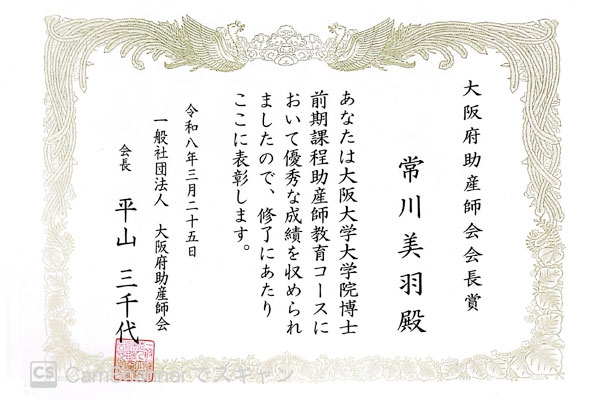 大阪府助産師会会長賞
常川美羽殿
あなたは大阪大学大学院博士
前期課程助産師教育コースに
おいて優秀な成績を収められ
ましたので、修了にあたり
ここに表彰します。
令和八年三月二十五日
一般社団法人 大阪府助産師会
会長 平山 三千代
CS CamScanner でスキャン